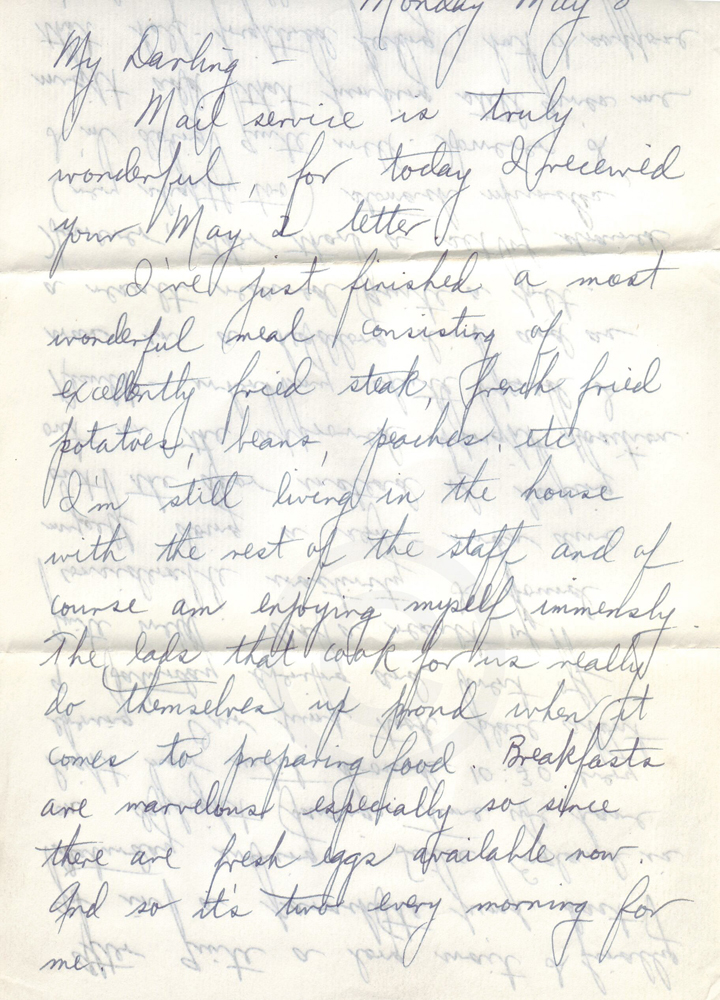 Monday May 8
My Darling -
Mail service is truly
wonderful, for today I received
your May 2 letter.
I've just finished a most
wonderful meal consisting of
excellently fried steak, french fried
potatoes, beans, peaches, etc
I'm still living in the house
with the rest of the staff and of
course am enjoying myself immensly.
The lads that cook for us really
do themselves up proud when it
comes to preparing food. Breakfasts
are marvelous especially so since
there are fresh eggs available now.
And so it's two every morning for
me.